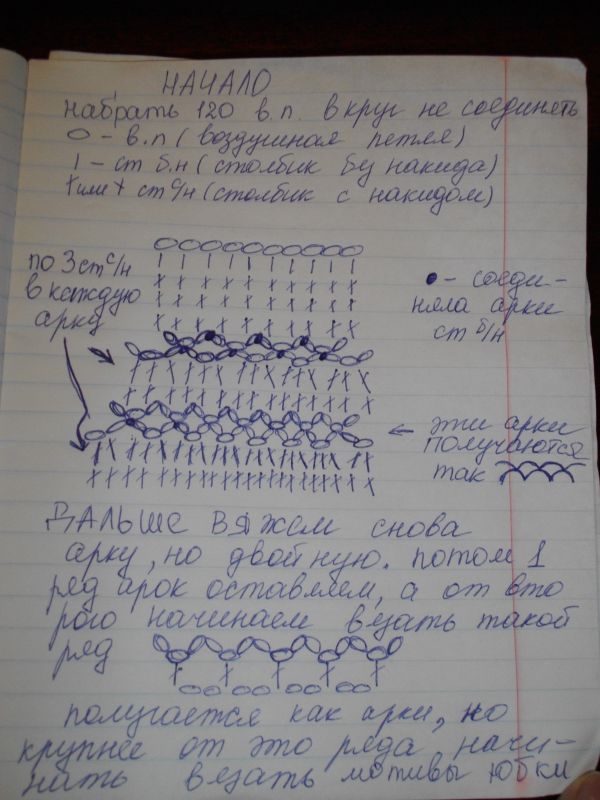 НАЧАЛО
набрать 120 в.п. в круг не соединять
О - в.п (воздушная петля)
I - ст б.н (столбик бу накида)
† или † ст с/н (столбик с накидом)
по 3 ст с/н
в каждую
арку
- соеди-
няла арки
ст б/н
эти арки
получаются
так
ДАЛЬШЕ ВЯЖЕМ снова
арку, но двойную. потом 1
ряд арок оставляем, а от вто
рого начинаем везать такой
ряд
полугается как арки, но
крупнее от это ряда начи-
нать везать мотивы юбки